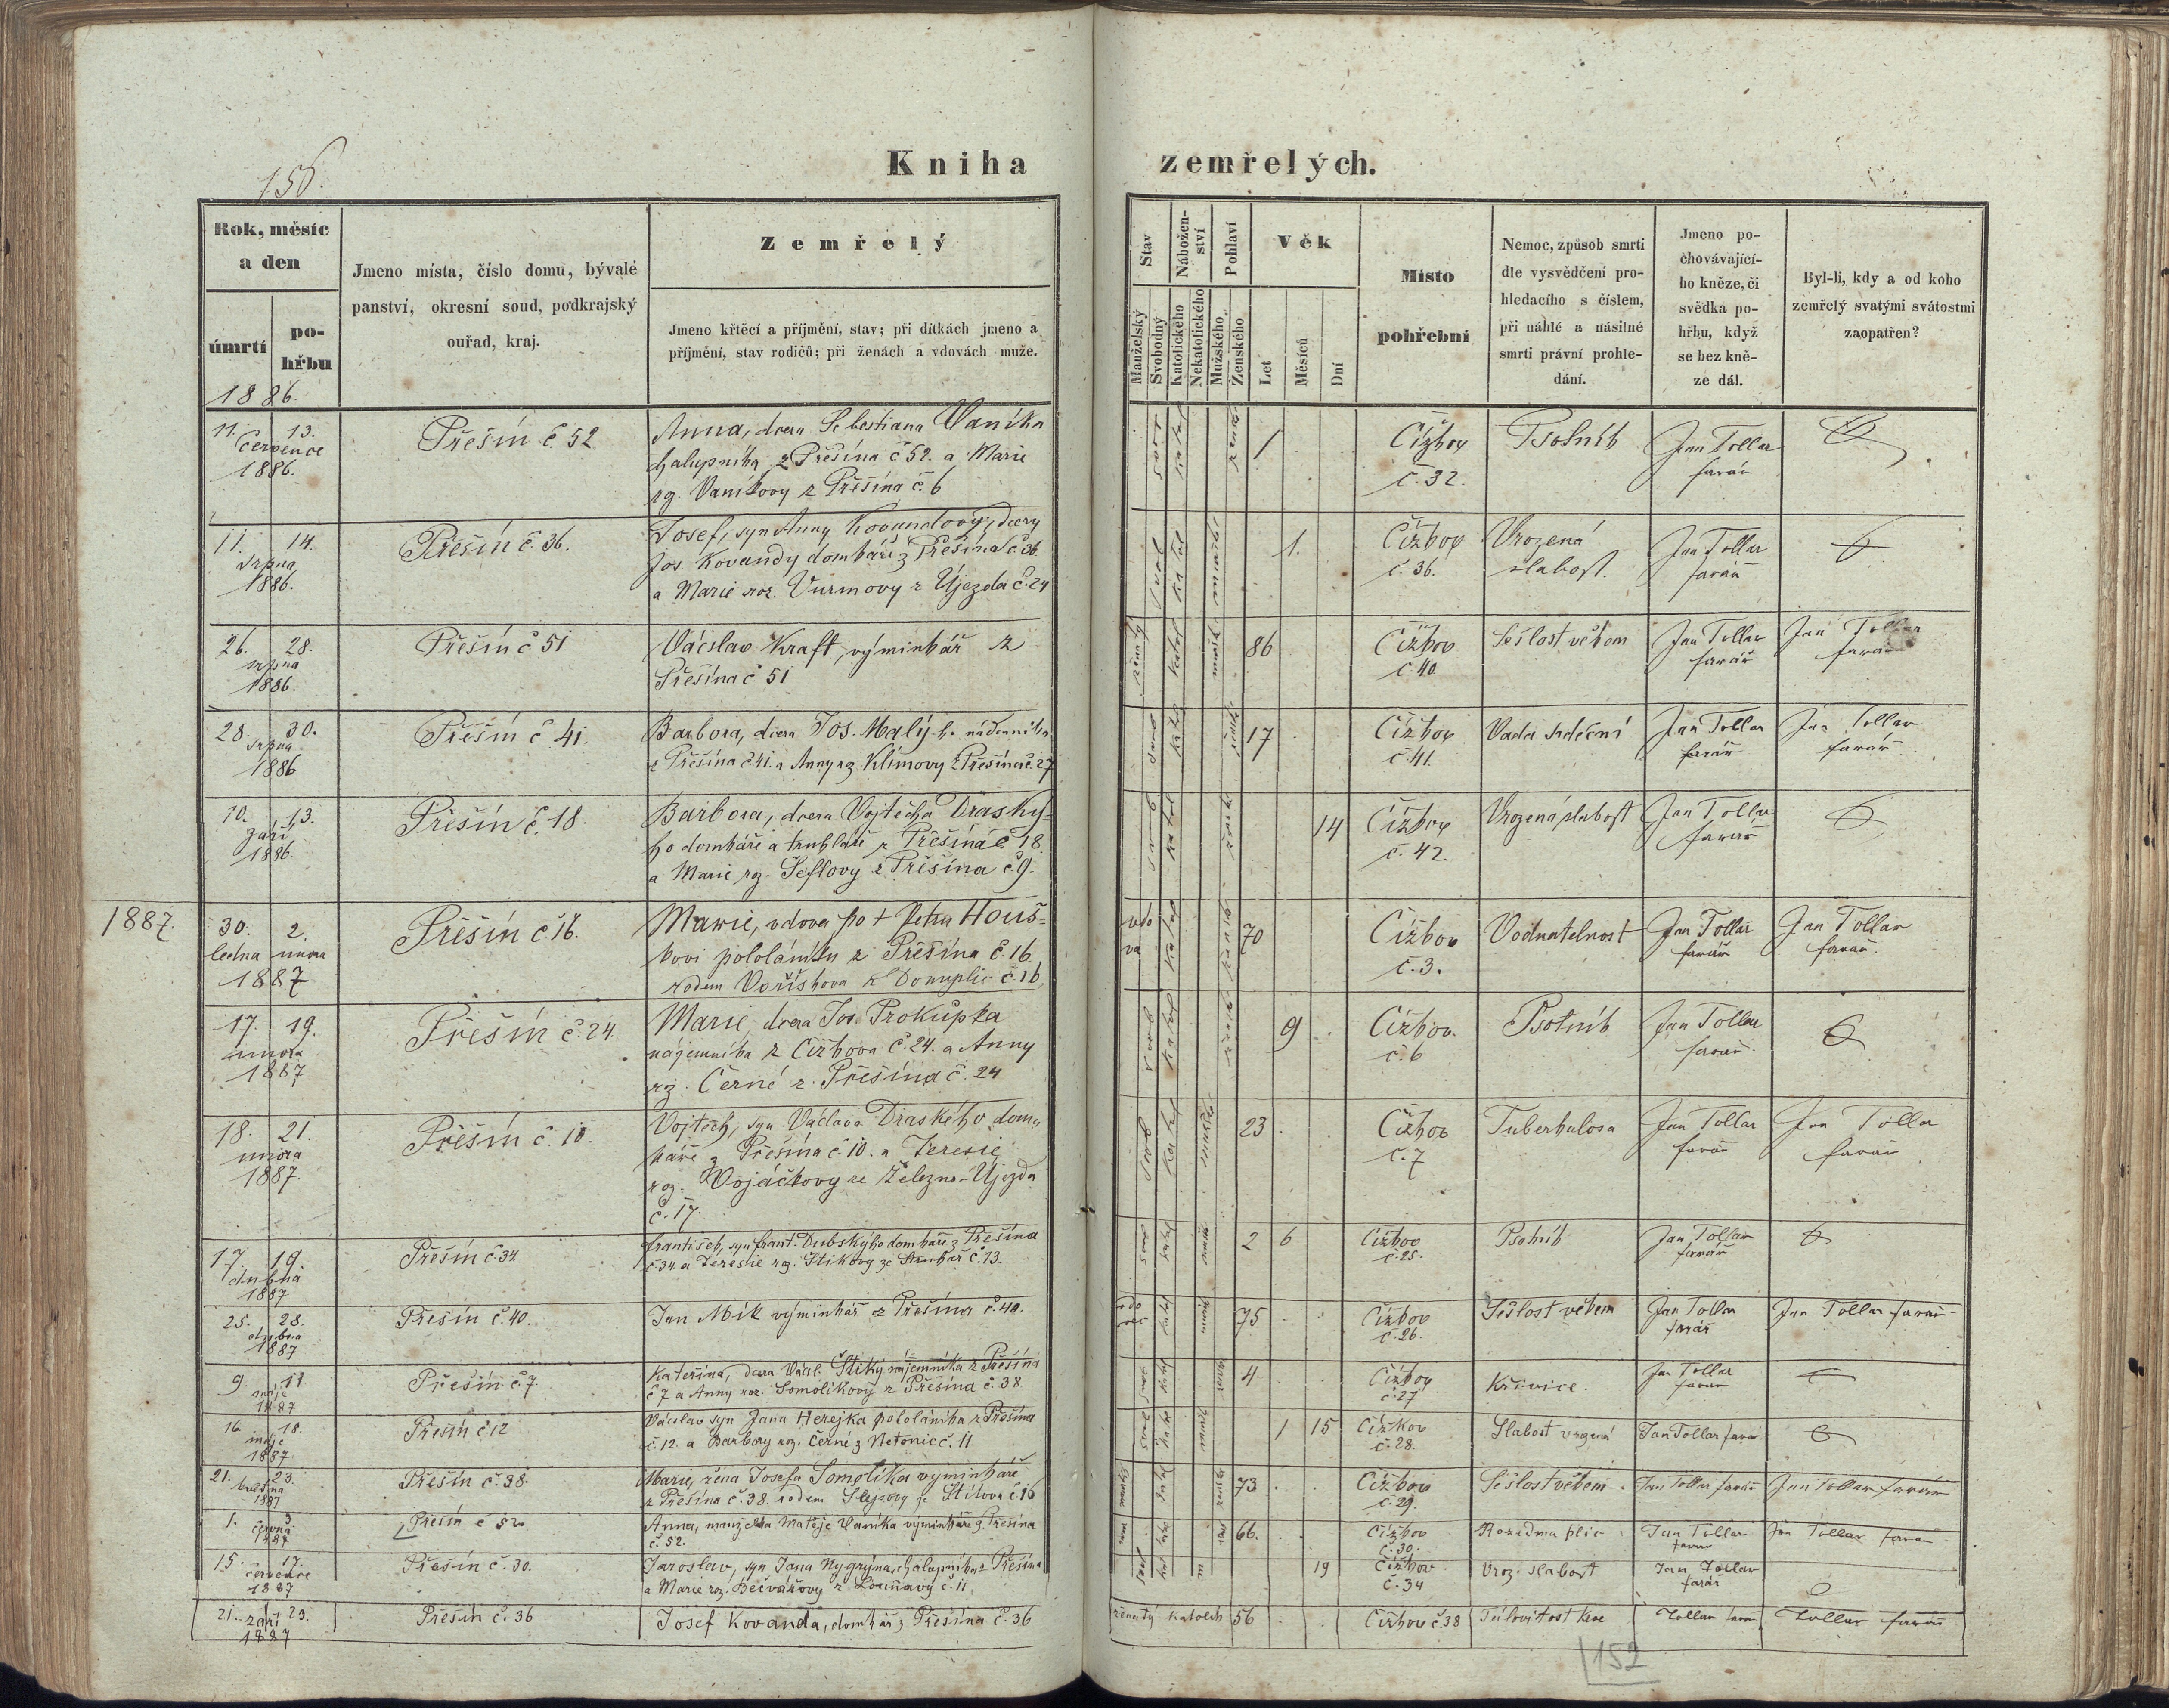 156.
Kniha zemřelých.
Rok, měsíc
a den
úmrtí
po-
hřbu
Jmeno místa, číslo domu, bývalé
panství, okresní soud, podkrajský
ouřad, kraj.
Zemřelý
Jmeno křtěcí a příjmění, stav; při dítkách jmeno a
příjmění, stav rodičů; při ženách a vdovách muže.
Stav
Manželský
Svobodný
Nábožen-
ství
Katolického
Nekatolického
Pohlaví
Mužského
Ženského
Věk
Let
Měsíců
Dní
Místo
pohřební
Nemoc, způsob smrti
dle vysvědčení pro-
hledacího s číslem,
při náhlé a násilné
smrti právní prohle-
dání.
Jmeno po-
chovávající-
ho kněze, či
svědka po-
hřbu, když
se bez kně-
ze dál.
Byl-li, kdy a od koho
zemřelý svatými svátostmi
zaopatřen?
1886.
11. 13.
července
1886.
Přešín č 52
Anna, dcera Sebestiana Vaníka
halupníka z Přešína č 52. a Marie
rz. Vaníkovy z Přešína č. 6
1
Čížkov
č. 32.
Psotník
Jan Tollar
farář
11. 14.
srpna
1886.
Přešín č. 36.
Josef, syn Anny Kovandovy, dcery
Jos. Kovandy domkáře z Přešína č 36
a Marie roz. Vurmovy z Újezda č. 24
1.
Čížkov
č. 36.
Vrozená
slabost.
Jan Tollar
farář
26. 28.
srpna
1886.
Přešín č 51
Václav Kraft, výminkář z
Přešína č. 51
ženatý
86
Čížkov
č. 40
Sešlost věkem
Jan Tollar
farář
Jan Tollar
farář
28. 30.
srpna
1886
Přešín č. 41.
Barbora, dcera Jos. Malý-ho nádenníka
z Přešína č. 41. a Anny rz. Klímovy z Přešína č. 27
17
Čížkov
č. 41.
Vada srdeční
Jan Tollar
farář
Jan Tollar
farář
10. 13.
září
1886.
Přešín č. 18.
Barbora, dcera Vojtěcha Draský-
ho domkáře a truhláře z Přešína č. 18.
a Marie rz. Šeflovy z Přešína č. 9.
14
Čížkov
č. 42.
Vrozená slabost
Jan Tollar
farář
1887.
30. 2.
ledna února
1887
Přešín č. 16.
Marie, vdova po + Petru Houš-
kovi pololáníku z Přešína č. 16
rodem Voříškova z č. 16
vdo
va
70
Čížkov
č. 3.
Vodnatelnost
Jan Tollar
farář
Jan Tollar
farář.
17. 19.
února
1887
Přešín č. 24.
Marie, dcera Jos. Prokůpka
nájemníka z Čížkova č. 24. a Anny
rz. Černé z Přešína č. 24
9
Čížkov.
č. 6
Psotník
Jan Tollar
farář.
18. 21.
února
1887.
Přešín č. 10.
Vojtěch, syn Václava Draského dom-
káře z Přešína č. 10. a Terezie
rz. Vojáčkovy ze Železno-Újezda
č. 17.
23
Čížkov
č. 7
Tuberkulosa
Jan Tollar
farář
Jan Tollar
farář
17. 19.
dubna
1887
Přešín č 34
František, syn Frant. Dubskýho domkáře z Přešína
č. 34 a Terezie rz. Štikovy ze č. 13.
2 6
Čížkov
č. 25.
Psotník
Jan Tollar
farář
25. 28.
dubna
1887
Přešín č. 40.
Jan Mík výminkář z Přešína č. 40.
75
Čížkov
č. 26.
Sešlost věkem
Jan Tollar
farář
Jan Tollar farář
9. 11
máje
1887
Přešín č. 7.
Kateřina, dcera Václ. Štiky nájemníka z Přešína
č 7 a Anny roz. Somolíkovy z Přešína č. 38.
4
Čížkov
č. 27
Křivice.
Jan Tollar
farář
16. 18.
máje
1887
Přešín č 12
Václav syn Jana Herejka pololáníka z Přešína
č. 12. a Barbory rz. Černé z Netonic č. 11
1 15
Čížkov
č. 28.
Slabost vrozená
Jan Tollar farář
21. 23.
května
1887
Přešín č. 38.
Marie, žena Josefa Somolíka výminkáře
z Přešína č. 38. rodem Slejzovy ze Štítova č. 16
73
Čížkov
č. 29.
Sešlost věkem
Jan Tollar farář
Jan Tollar farář
1. 3
června
1887
Přešín č 52
Anna, manželka Matěje Vaníka výminkáře z Přešína
č. 52.
66.
Čížkov
č. 30.
Rozedma plic
Jan Tollar
farář
Jan Tollar farář
15. 17.
července
1887
Přešín č. 30.
Jaroslav, syn Jana Nygrýna, chalupníka z Přešína
a Marie rz. Bečvářovy z č. 11
19
Čížkov
č. 34
Vroz. slabost
Jan Tollar
farář
21. 23.
září
1887
Přešín č. 36
Josef Kovanda, domkář z Přešína č. 36
ženatý katolík 56
Čížkov č. 38
Tollar farář
Tollar farář
152